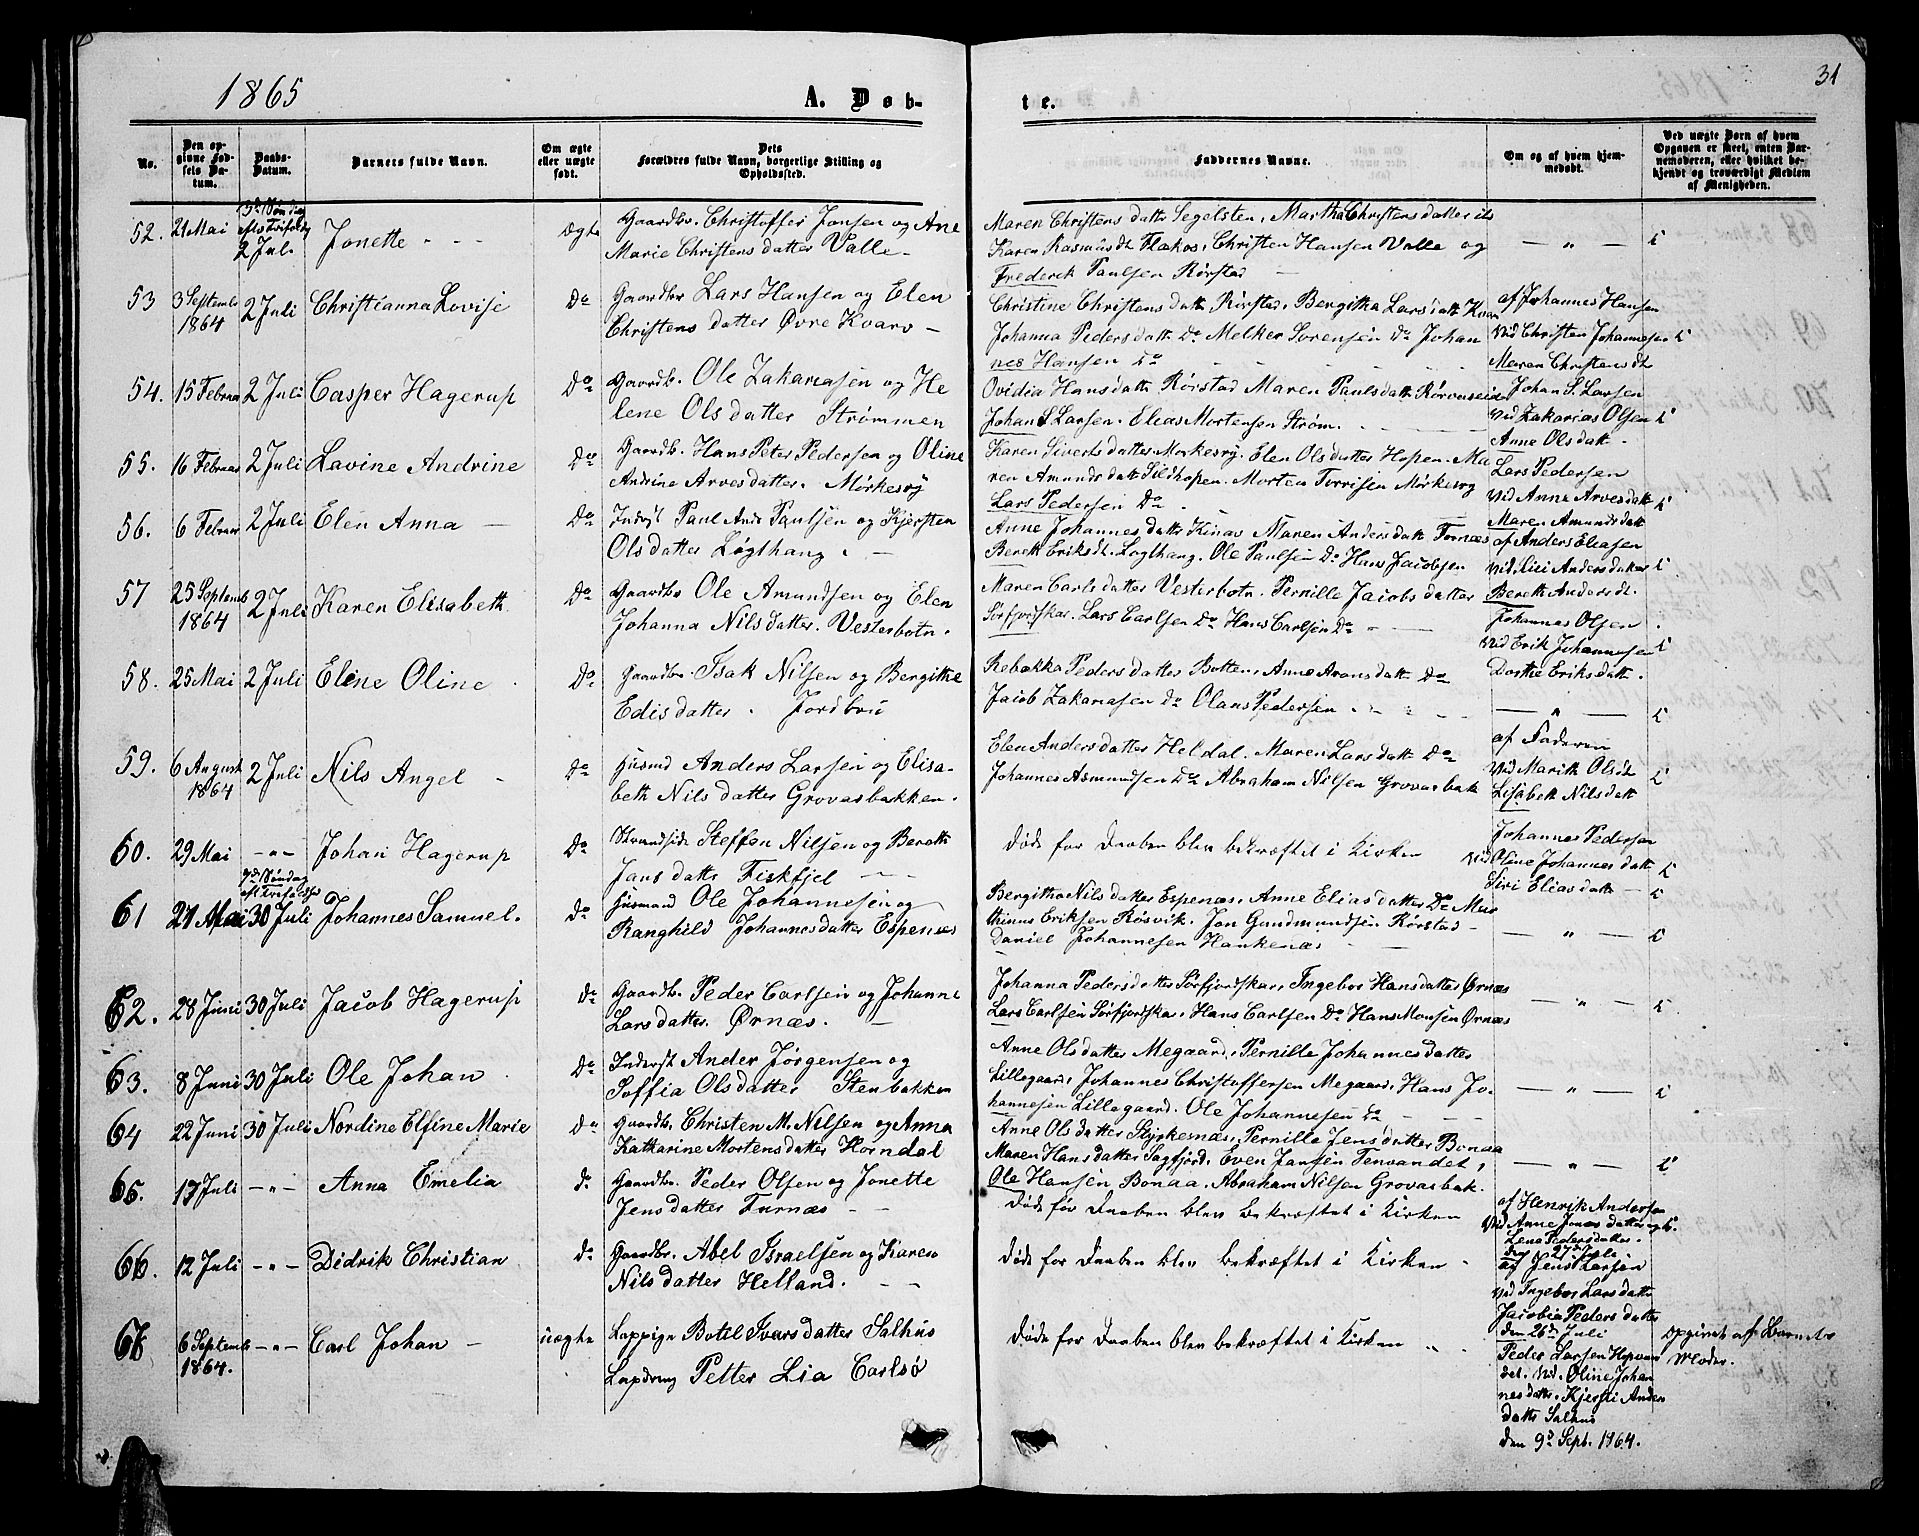 1865
A. Døb-
te.
31
No.
Den op-
givne Fød-
sels Da-
tum.
Daabs-
Datum.
Barnets fulde Navn.
Om ægte
eller uægte
født.
Dets
Forældres fulde Navn, borgerlige Stilling og
Opholdssted.
Faddernes Navne.
Om og af hvem hjem-
medøbt.
Ved uægte Børn af hvem
Opgaven er skeet, enten Bar-
nemoderen, eller hvilket be-
kjendt og troværdigt Medlem
af Menigheden.
52. 21 Mai 2 Juli Jonette - - ægte Gaardbr. Christoffer Jonsen og Ane
Marie Christensdatter Valle -
Maren Christensdatter Segelsten, Martha Christensdatter
Karen Rasmusdt Flakos, Christen Hansen Valle og
Frederik Paulsen Rørstad -
— " —
53 3 Septembr 1864 2 Juli Christianna Lovise Do Gaardbr Lars Hansen og Elen
Christensdatter Øvre Kvarv -
Christine Christensdatt Rørstad, Bergitha Larsdatt Kvarv
Johanna Pedersdatt Do Melker Sørensen Do Johan
nes Hansen Do
af Johannes Hansen
Vid Christen Johannesen
Maren Christensdt
54. 15 Februar 2 Juli Casper Hagerup Do Gaardb. Ole Zakariasen og He
lene Olsdatter Strømmen
Ovidia Hansdatt Rørstad Maren Paulsdatt Rørvaseid
Johan S Larsen. Elias Mortensen Strøm.
Johan S. Larsen
Vid Zakarias Olsen
Anne Olsdatt -
55. 16 Februar 2 Juli Lavine Andrine Do Gaardb. Hans Peter Pedersen og Oline
Andrine Arvesdatter. Mørkesvig
Karen Sivertsdatter Mørkesvig. Elen Olsdatter Hopen. Ma
ren Amundsdatt Sildhopen. Morten Torrisen Mørkesvig
Lars Pedersen Do
Lars Pedersen
Vid Anne Arvesdatt
Maren Amundsdatt
56. 6 Februar 2 Juli Elen Anna - Do Inderst Paul And. Paulsen og Kjersten
Olsdatter Løgthang. -
Anne Johannesdatter Kinas Maren Andersdatt Tørnæs
Berett Eriksdt. Løgthang. Ole Paulsen Do Hans Jacobsen
af Anders Eliasen
Vid. Siri Andersdatter
Berett Andersdt.
57 25 Septemb 1864 2 Juli Karen Elisabeth Do Gaardb. Ole Amundsen og Elen
Johanna Nilsdatter. Vesterbotn.
Maren Carlsdatter Vesterbotn. Pernille Jacobsdatter
Sørfjordskar. Lars Carlsen Do Hans Carlsen Do
Johannes Olsen
Vid Erik Johannesen
Dorthe Eriksdatt.
58. 25 Mai 2 Juli Eline Oline Do Gaardbr. Isak Nilsen og Bergithe
Edisdatter. Fordbru
Rebækka Pedersdatter Botten, Anne Aronsdatt Do
Jacob Zakariasen Do Olaus Pedersen.
— " —
59. 6 August 1864 2 Juli Nils Angel - Do Husmd Anders Larsen og Elisa-
beth Nilsdatter Grovasbakken.
Elen Andersdatter Heldal. Maren Larsdatt Do
Johannes Asmundsen Do Abraham Nilsen Grovasbak
af Faderen
Vid Marith Olsdt
Lisabett Nilsdatt
60. 29 Mai -"- Johan Hagerup Do Strandsid. Steffen Nilsen og Berett
Jansdatt Fiskfjel
Døde før Daaben blev bekræftet i Kirken
Johannes Pedersen
Vid Oline Johannesdatt
Siri Eliasdatt
61 21 Mai 30 Juli Johannes Samuel. Do Husmand Ole Johannesen og
Ranghild Johannesdatter Espenæs
Bergitha Nilsdatter Espenæs, Anne Eliasdatter Do Mar
thinus Eriksen Røsvik. Jon Gundmundsen Rørstad -
Daniel Johannesen Hankenæs
— " —
62. 28 Juni 30 Juli Jacob Hagerup Do Gaardb. Peder Carlsen og Johanne
Larsdatter. Ørnæs. -
Johanna Pedersdatter Sørfjordskar, Ingebor Hansdatter Ørnæs
Lars Carlsen Sørfjordskar, Hans Carlsen Do Hans Monsen Ørnæs
— " —
63. 8 Juni 30 Juli Ole Johan Do Inderst Ander Jørgensen og
Soffia Olsdatter Stenbakken
Anne Olsdatter Megaard. Pernille Johannesdatter
Lillegaard, Johannes Christoffersen Megaard, Hans Jo-
hannesen Lillegaard. Ole Johannesen Do
— " —
64 22 Juni 30 Juli Nordine Elfine Marie Do Gaardb. Christen M. Nilsen og Anna
Katharine Mortensdatter Horndal
Anne Olsdatter Styrkesnæs, Pernille Jensdatter Bonaa
Maren Hansdatter Sagfjord, Even Jansen Tenvandet,
Ole Hansen Bonaa. Abraham Nilsen Grovasbak.
— " —
65. 17 Juli -"- Anna Emelia Do Gaardbr. Peder Olsen og Jonette
Jensdatter Furnæs -
Døde før Daaben blev bekræftet i Kirken
af Henrik Andersen
Vid Anne Jonasdatter og
Lena Pedersdatter
den 27de Juli
66. 12 Juli -"- Didrik Christian Do Gaardbr. Abel Israelsen og Karen
Nilsdatter Helland.
Døde før Daaben blev bekræftet i Kirken
af Jens Larsen
Vid Ingebor Larsdatter
Jacobia Pedersdatter
den 26de Juli
67 6 Septemb 1864. -"- Carl Johan - uægte Lappige Botel Ivarsdatter Salhus
Lapdreng Petter Lia Carlsø
Døde før Daaben blev bekræftet i Kirken
Peder Larsen Hopvan
det. Vid. Oline Johan
nesdatt. Kjersti Anders
datt Salhus
den 9de Sept. 1864.
opgivet af Barnets
Moder.